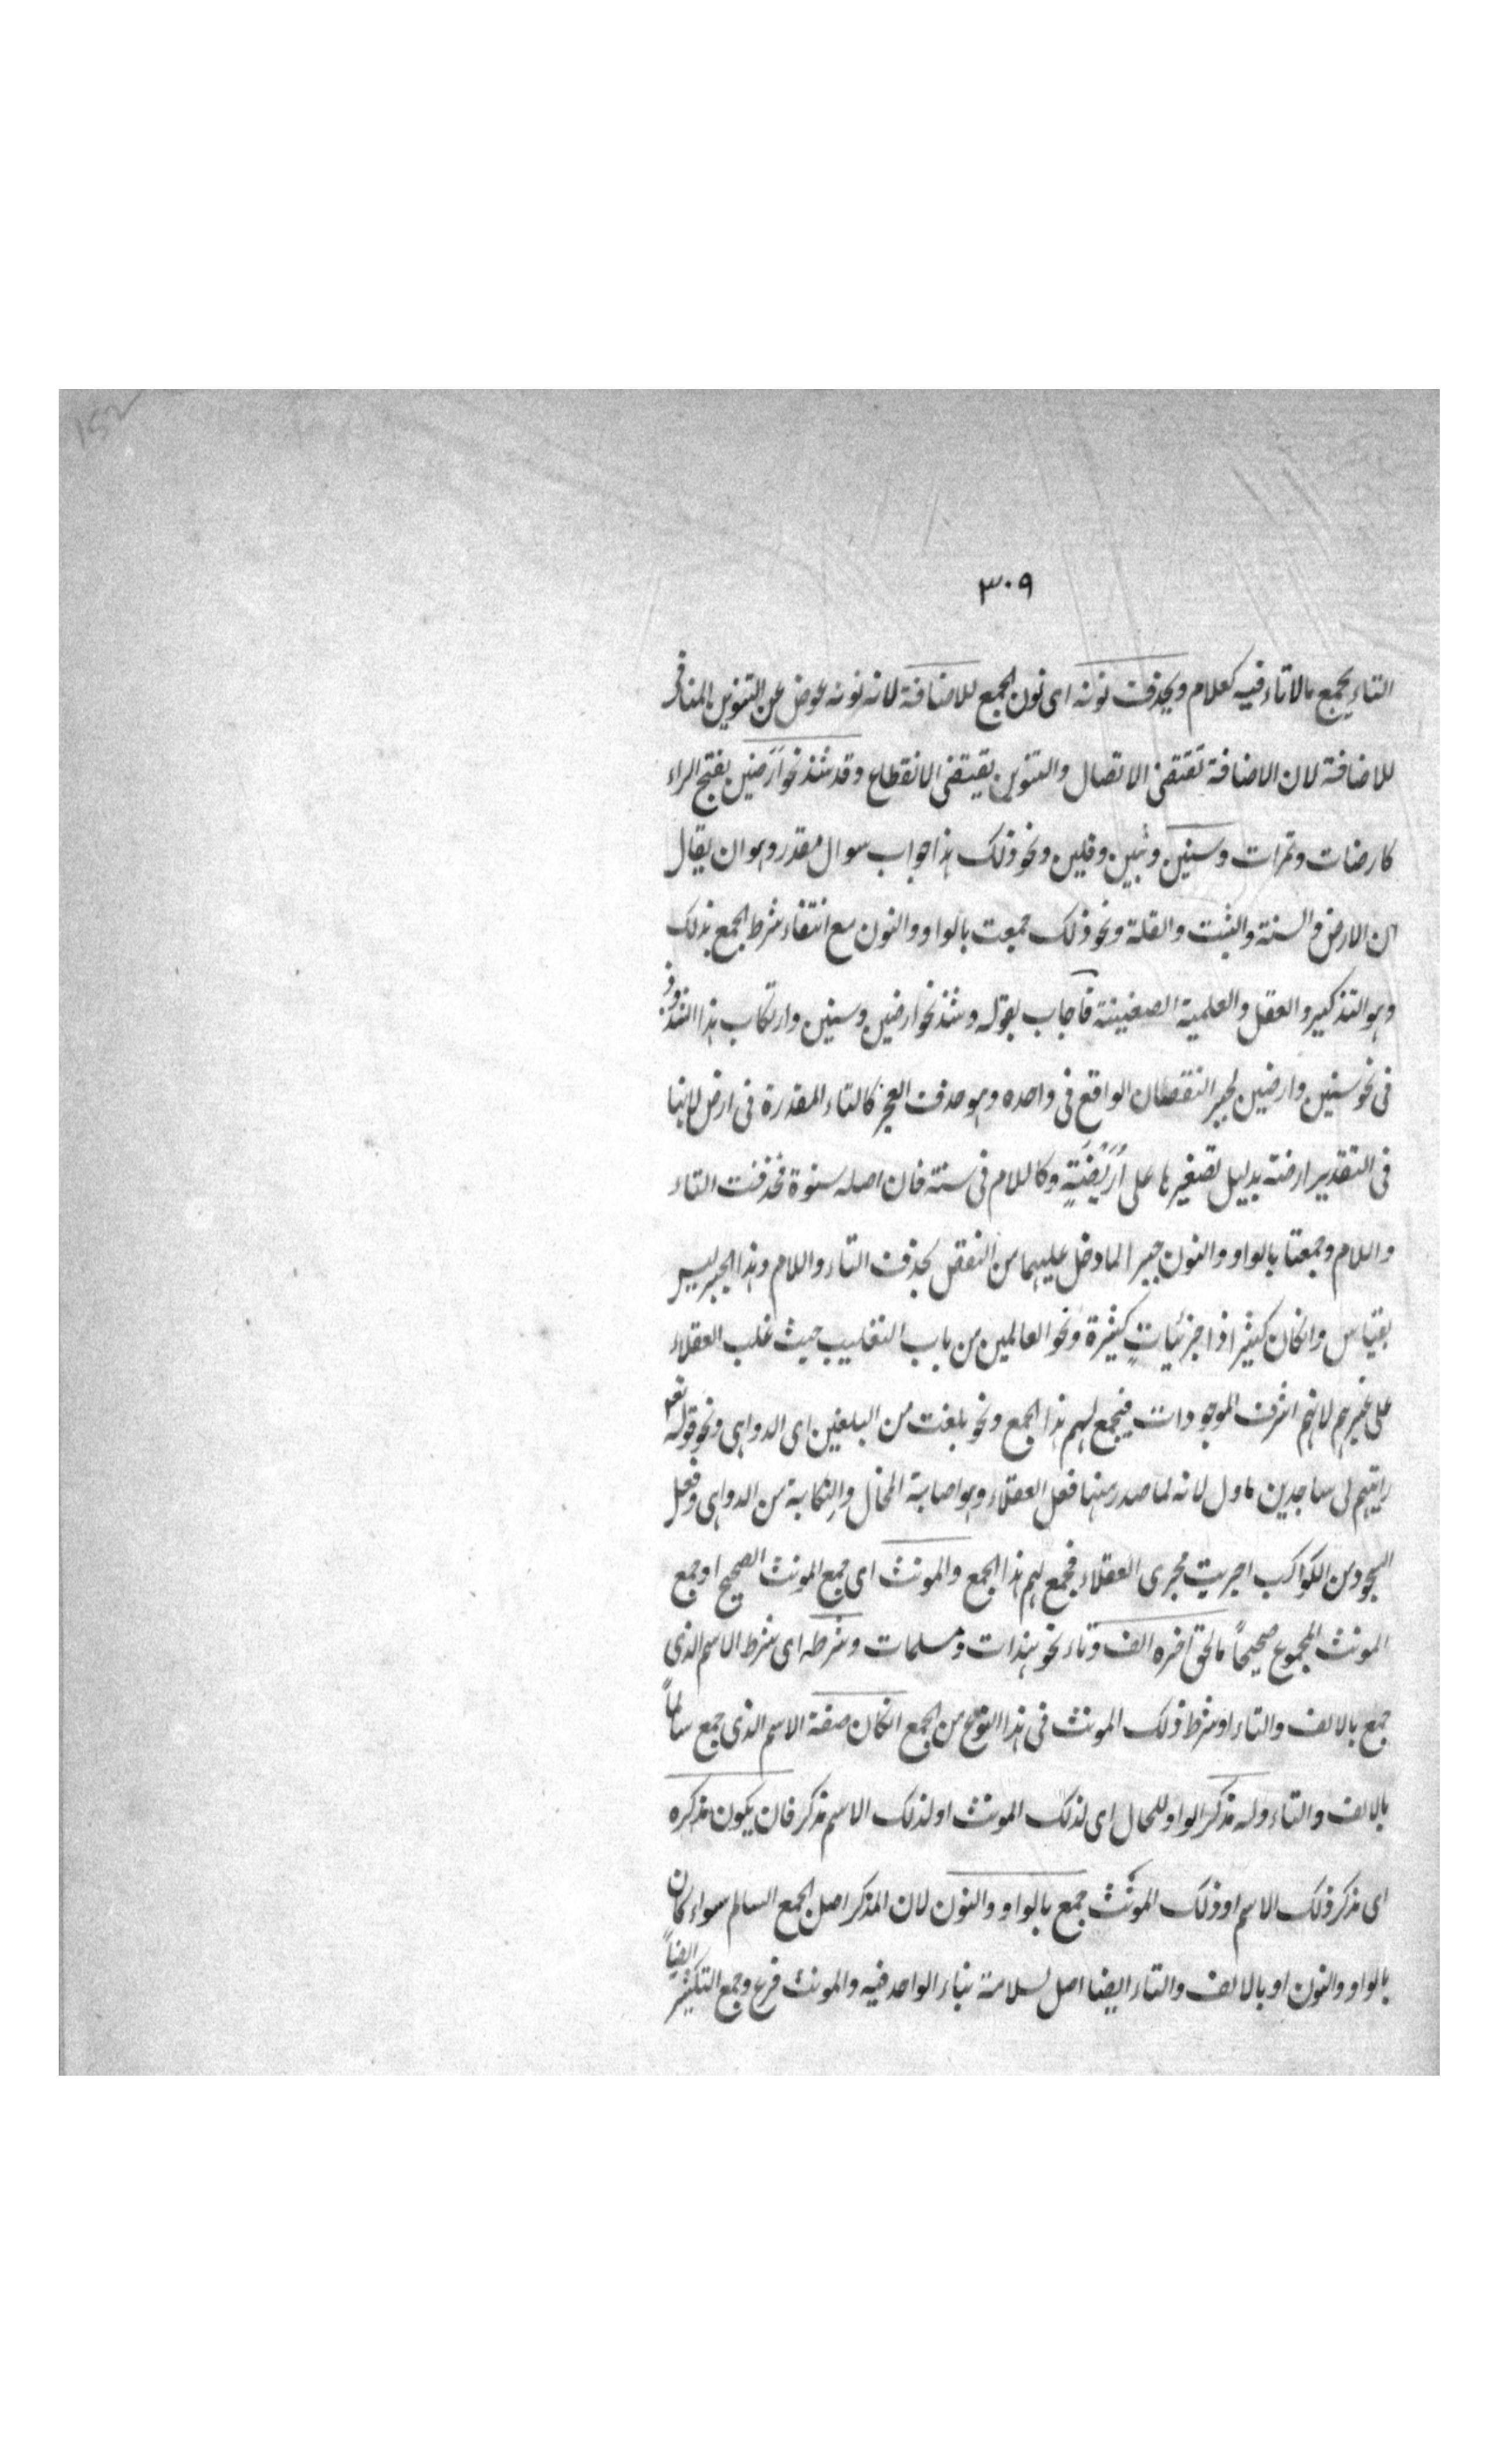 ٣٠٩
التاء يجمع بالاتاء فيه كعلام ويحذف نونه اى نون الجمع للاضافة لانه نونه عوض عن التنوين المنافى
للاضافة لان الاضافة تقتضى الاتصال والتنوين يقتضى الانقطاع وقد شذ نحو ارضين بفتح الراء
كارضات وتمرات وسنين وثبين وقلين ونحو ذلك هذا جواب سوال مقدر وهو ان يقال
ان الارض والسنة والثبت والقلة ونحو ذلك جمعت بالواو والنون مع انتفاء شرط الجمع بذلك
وهو التذكير والعقل والعلمية الصفيتة فاجاب بقوله وشذ نحو ارضين وسنين وارتكاب هذا الشذوذ
فى نحو سنين وارضين لجبر النقصان الواقع فى واحده وهو حذف العجز كالتاء المقدرة فى ارض لانها
فى التقدير ارضة بدليل تصغيرها على اُرَيْضَةٍ وكاللام فى سنة فان اصله سنوة فحذفت التاء
واللام وجمعتا بالواو والنون جبرا لما دخل عليهما من النقص بحذف التاء واللام وهذا الجبر ليس
بقياس وانكان كثيرا فى جزئياتٍ كثيرة ونحو العالمين من باب التغليب حيث غلب العقلاء
على غيرهم لانهم اشرف الموجودات فيجمع لهم هذا الجمع ونحو بلغت من البلغين اى الدواهى ونحو قوله تعم
رايتهم لى ساجدين ماول لانه لما صدر منها فعل العقلاء وهو اصابة والنكاية من الدواهى وفعل
السجود من الكواكب اجريت مجرى العقلاء فجمع لهم هذا الجمع والمونث اى جمع المونث الصحيح او جمع
المونث المجموع صحيحاً مالحق اخره الف وتاء نحو هندات ومسلمات وشرطه اى شرط الاسم الذى
جمع بالالف والتاء او شرط ذلك المونث فى هذا النوع من الجمع انكان صفة الاسم الذى جمع سالماً
بالالف والتاء وله مذكر الواو للحال اى لذلك المونث او لذلك الاسم مذكر فان يكون مذكره
اى مذكر ذلك الاسم او ذلك المونث جمع بالواو والنون لان المذكر اصل الجمع السالم سواء كان
بالواو والنون او بالالف والتاء ايضا اصل لسلامة بناء الواحد فيه والمونث فرع وجمع التكثير ايضاً